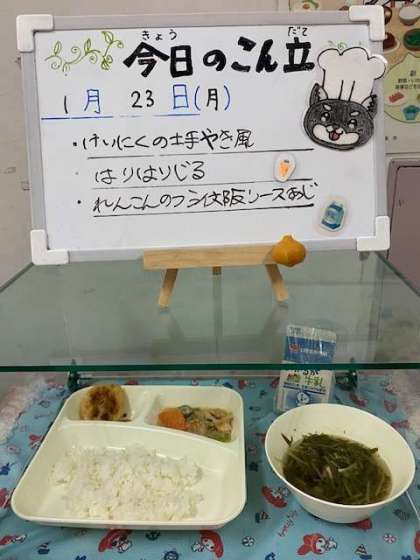 きょう だて
今日のこん立
1月 23日(月)
・けいにくの土手やき風
・はりはりじる
・れんこんのフライ大阪ソースあじ
副
牛乳